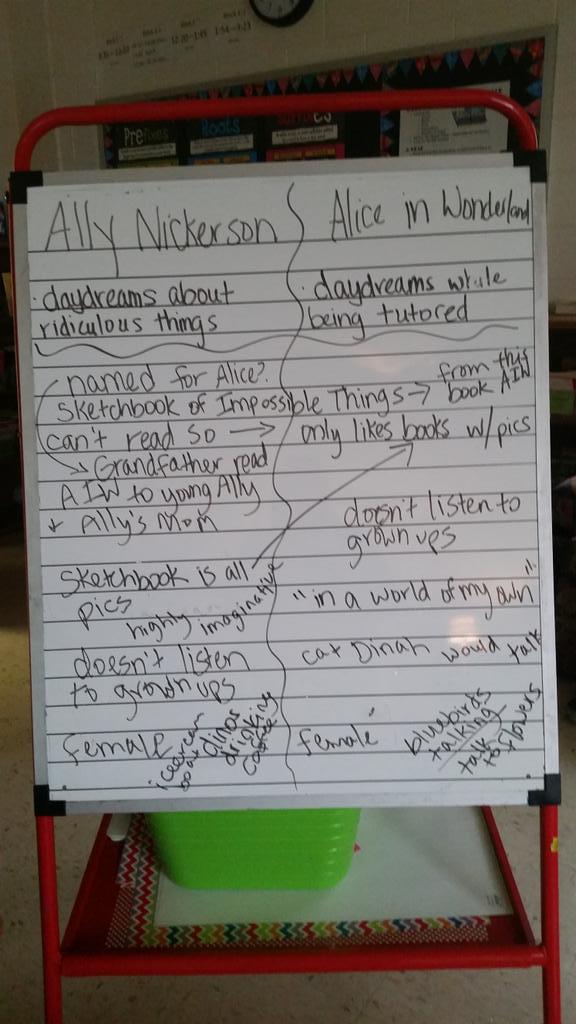 Prefixes
Roots
Ally Nickerson
Alice in Wonderland
· daydreams about
ridiculous things
· daydreams while
being tutored
named for Alice?
Sketchbook of Impossible Things → from this
book AIW
can't read so → only likes books w/pics
→ Grandfather read
AIW to young Ally
+ Ally's Mom
doesn't listen to
grown ups
Sketchbook is all
pics
highly imaginative
"in a world of my own"
doesn't listen
to grown ups
cat Dinah would talk
female
icecream
boat
dinos
drinking
coffee
female
bluebirds
talking
talk
to flowers